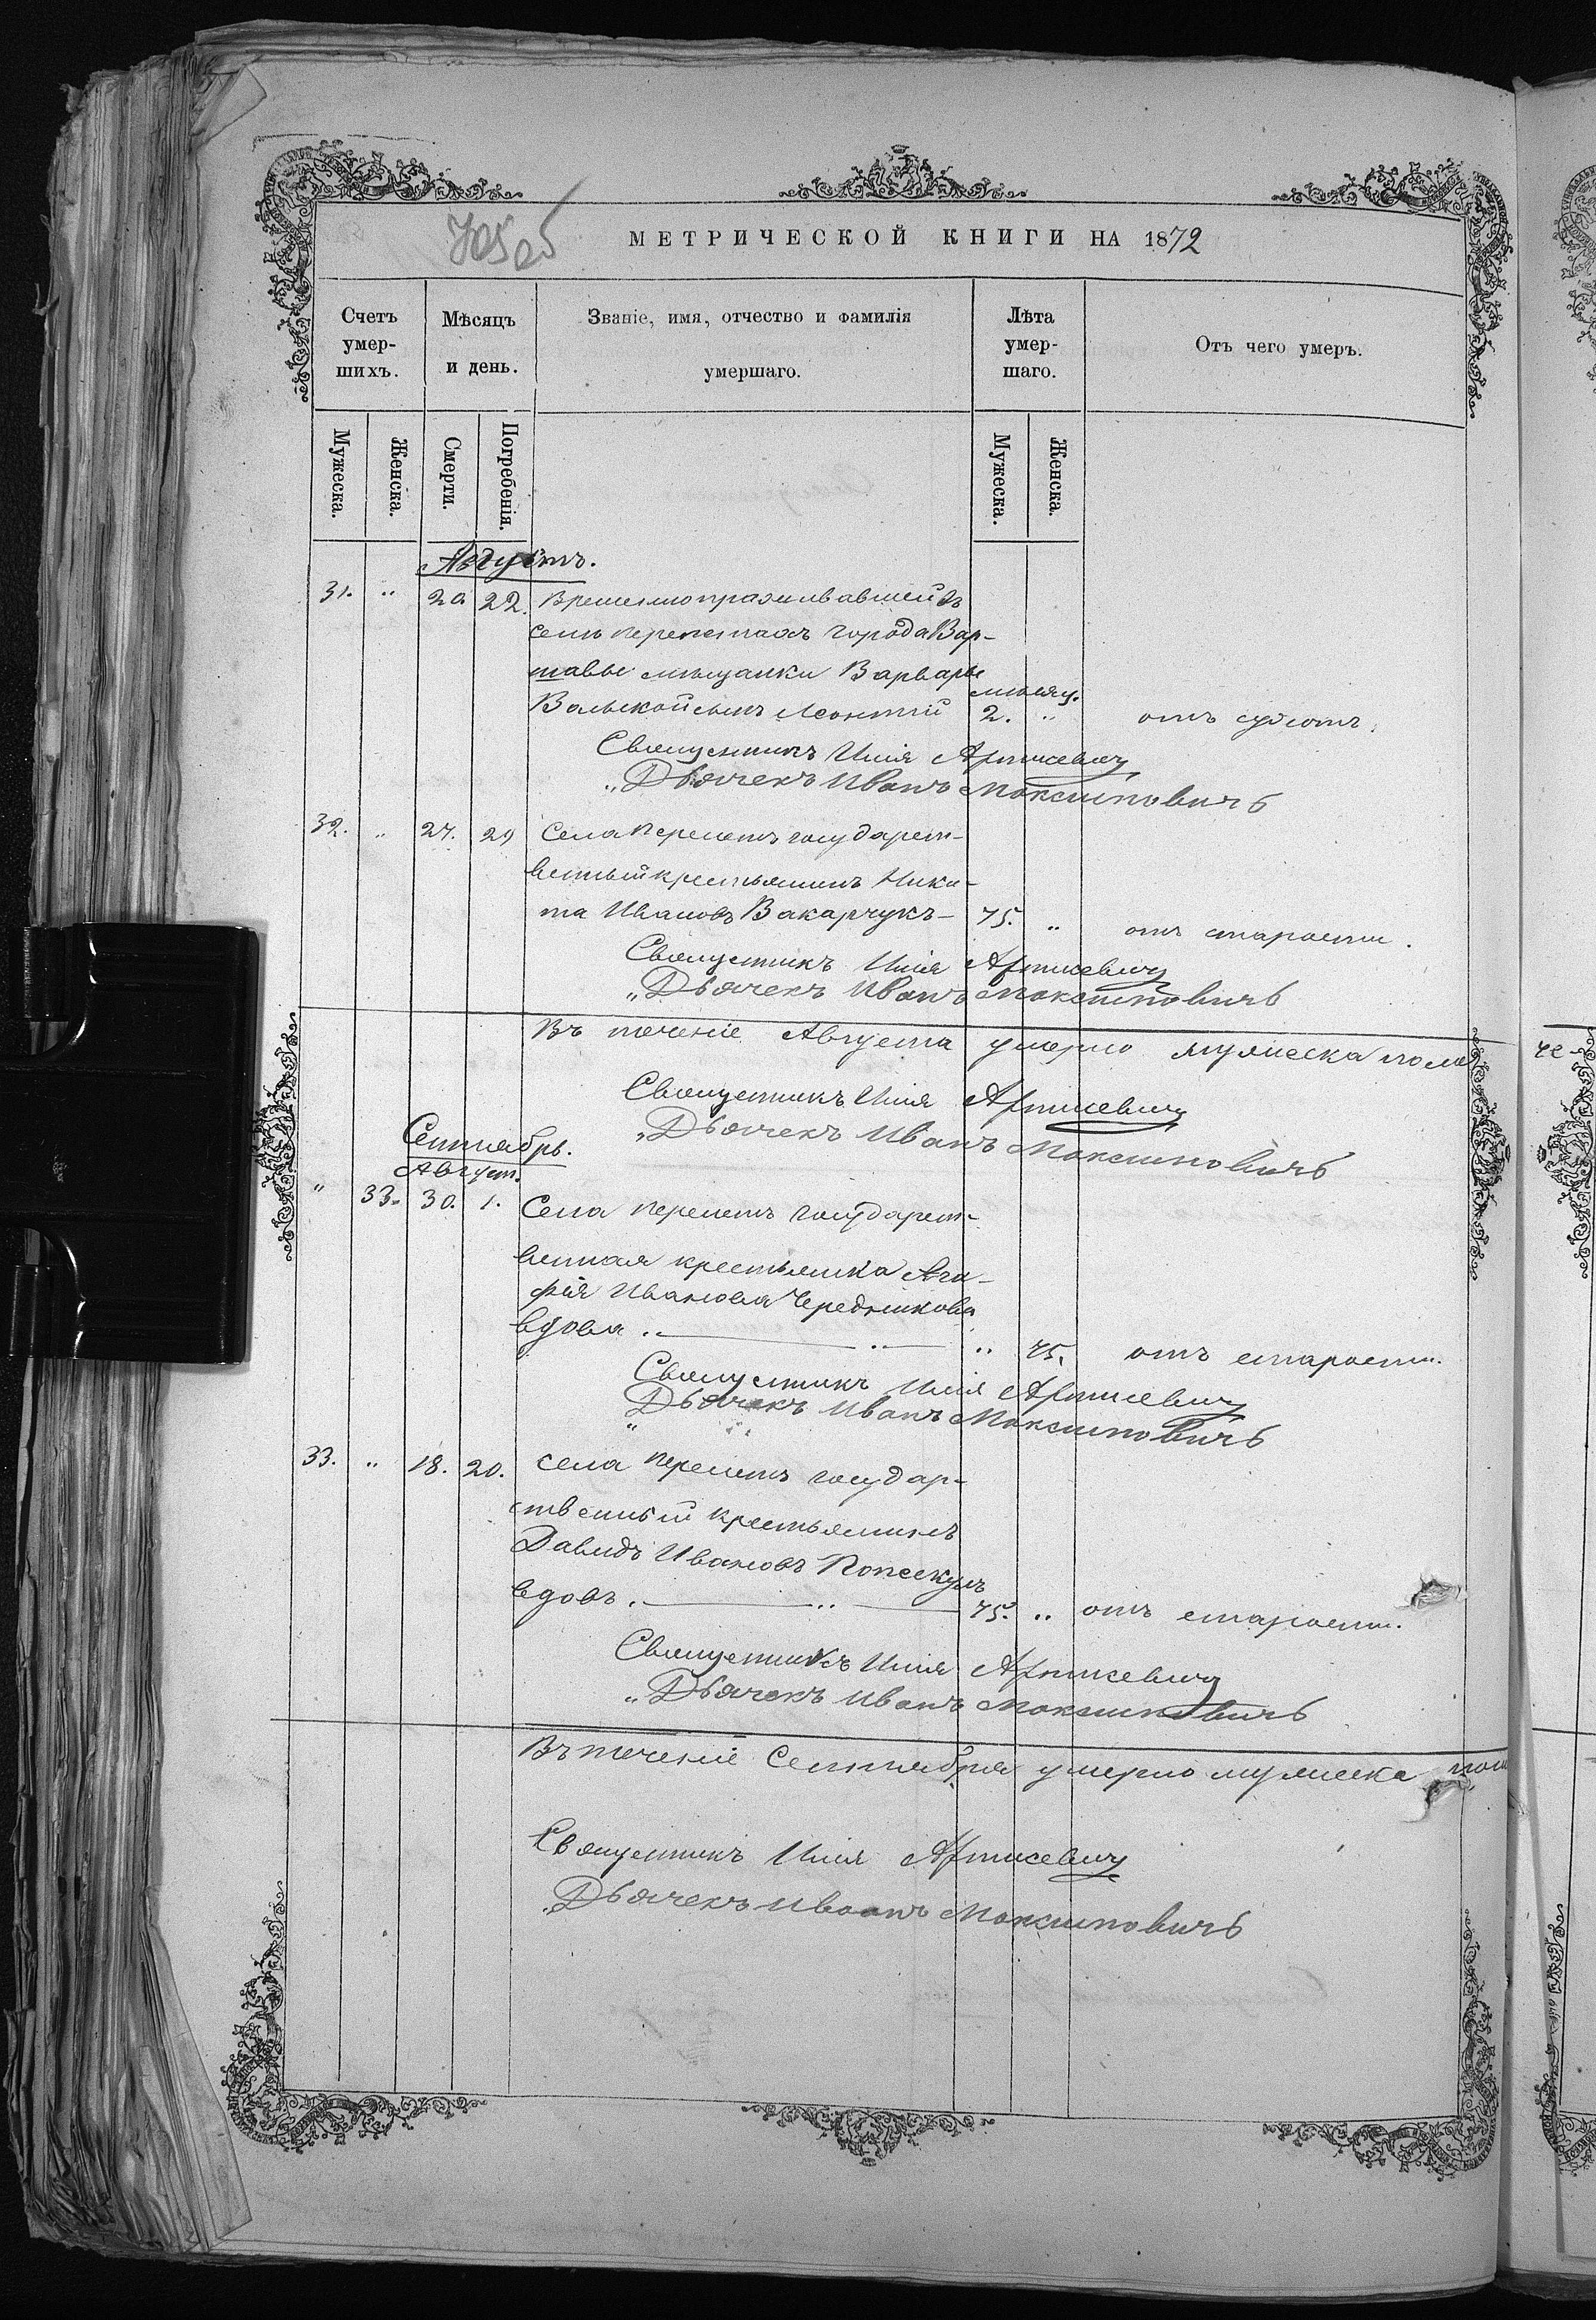 МЕТРИЧЕСКОЙ КНИГИ НА 1872
Счетъ умер-шихъ.
Мѣсяцъ и день.
Званіе, имя, отчество и фамилія умершаго.
Лѣта умер-шаго.
Отъ чего умеръ.
Мужеска.
Женска.
Смерти.
Погребенія.
Мужеска.
Женска.
Августъ.
31. " 20 22. Временно проживавшей въ
селѣ города Вар-
шавы мѣщанки Варвары
мѣсяц.
Вольской сынъ Леонтій 2. "
Священникъ Илія Артисевичъ
" Дьячекъ Иванъ Максимовичъ
32. " 27. 29 Села государст-
венный крестьянинъ Ники-
та Ивановъ Вакарчукъ - 75. " отъ старости.
Священникъ Илія Артисевичъ
" Дьячекъ Иванъ Максимовичъ
Въ теченіе Августа умерло мужеска пола
Священникъ Илія Артисевичъ
" Дьячекъ Иванъ Максимовичъ
Сентябрь.
Август.
" 33. 30. 1. Села государст-
венная крестьянка Ага-
фія Иванова Чередникова
вдова. — " — " 75. отъ старости.
Священникъ Илія Артисевичъ
" Дьячекъ Иванъ Максимовичъ
33. " 18. 20. села государ-
ственный крестьянинъ
Давидъ Ивановъ
вдовъ. — " — 75. " отъ старости.
Священникъ Илія Артисевичъ
" Дьячекъ Иванъ Максимовичъ
Въ теченіе Сентября умерло мужеска пола
Священникъ Илія Артисевичъ
" Дьячекъ Иванъ Максимовичъ